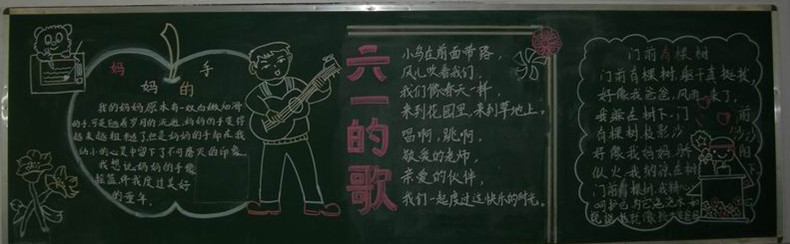 妈妈的手
我的妈妈原本有一双白嫩细滑
的手,可是随着岁月的流逝,妈妈的手变得
越来越粗糙了,但是妈妈的手却在我
幼小的心灵中留下了不可磨灭的印象。
我想让妈妈的手像
摇篮伴我度过美好
的童年。
六一的歌
小鸟在前面带路,
风儿吹着我们,
我们像春天一样,
来到花园里,来到草地上。
唱啊,跳啊,
敬爱的老师,
亲爱的伙伴,
我们一起度过这快乐的时光。
门前有棵树
门前有棵树,躯干直挺拔,
好像我爸爸,风雨来了,
我躲在树下,门前
有棵树,枝影沙沙
好像我妈妈,
似火,我纳凉在树
门前有棵树,我